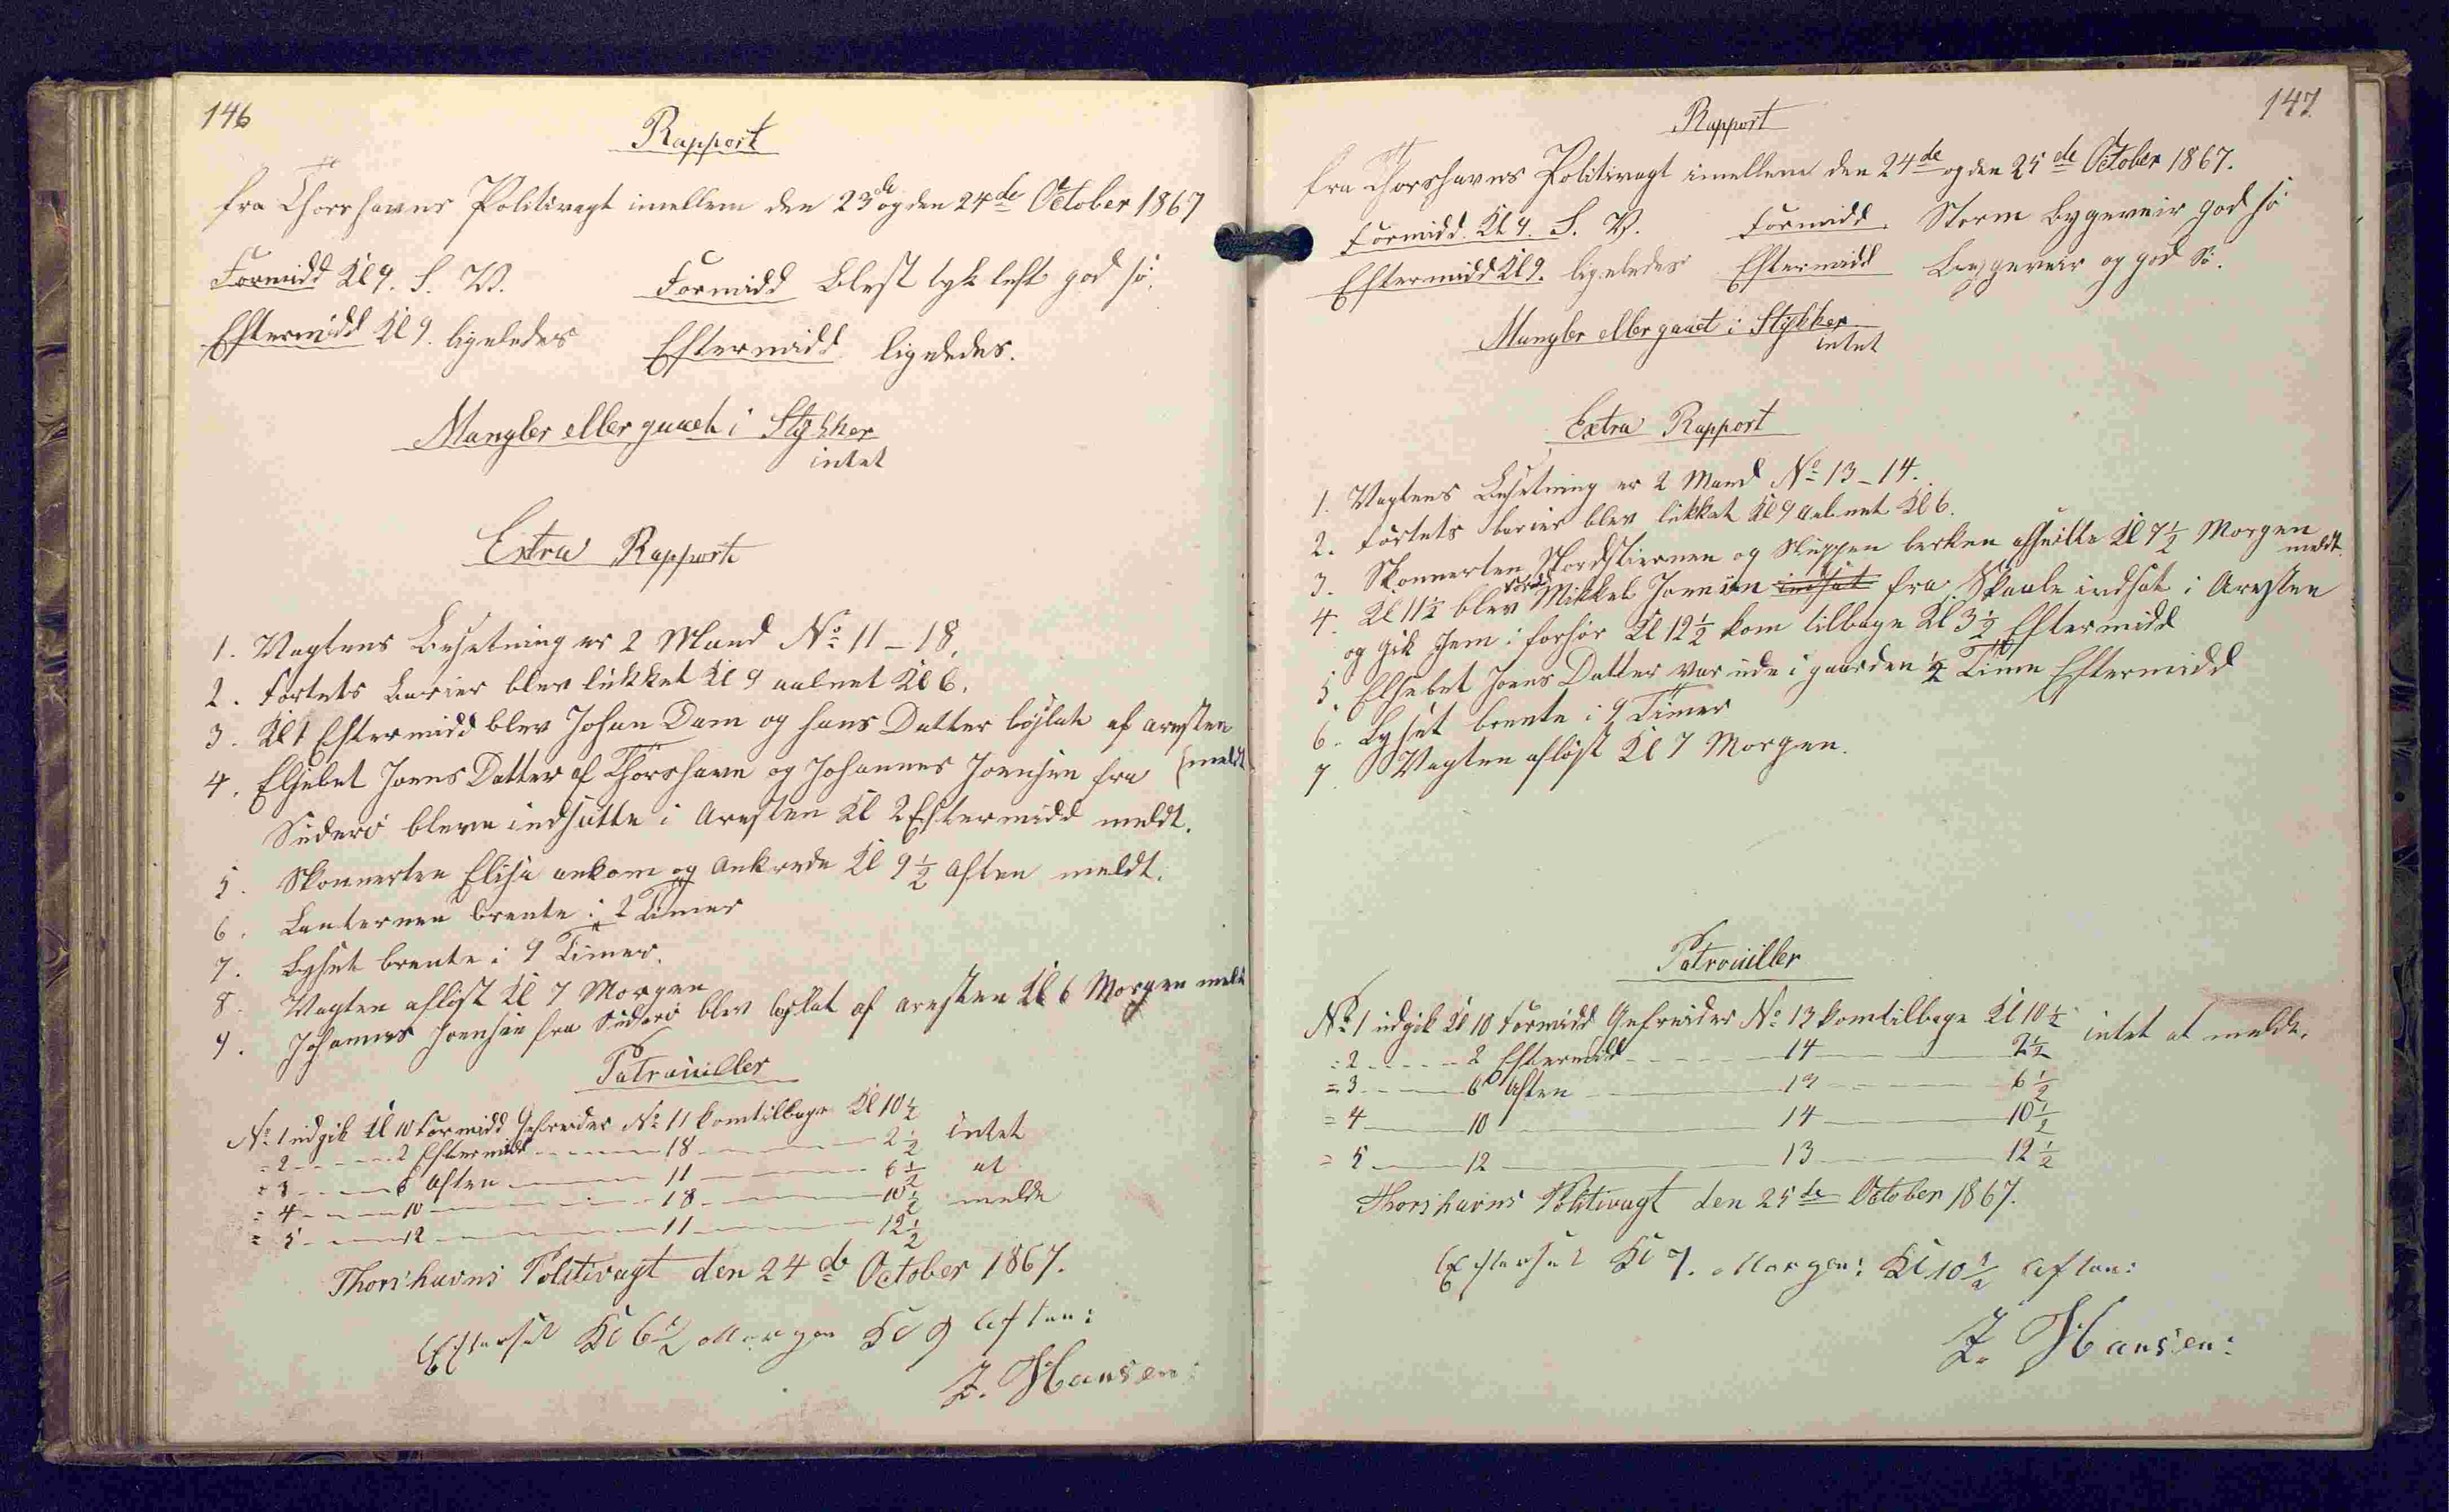 146
Rapport
fra Thorshavns Politivagt imellem den 23de og den 24de October 1867
Formidd Kl 9. S. V. Formidd Blest tyk luft god sö.
Eftermidd Kl 9. ligeledes Eftermidd ligeledes.
Mangler eller gaaet i Stykker
intet
Extra Rapport
1. Vagtens Besetning er 2 Mand No 11 – 18.
2. Fortets Barier blev lukket Kl 9 aabnet Kl 6.
3. Kl 1 Eftermidd blev Johan Dam og hans Datter löslat af aresten
(meldt
4. Elsebet Joens Datter af Thorshavn og Johannes Joensen fra
Suderö bleve indsatte i Aresten Kl 2 Eftermidd meldt.
5. Skonnerten Elisa ankom og ankrede Kl 9 1/2 Aften meldt.
6. Lanternen brente i 2 Timer
7. Lyset brente i 9 Timer.
8. Vagten aflöst Kl 7 Morgen
9. Johannes Joensen fra Suderö blev löslat af aresten Kl 6 Morgen meldt
Patrouiller
No 1 udgik Kl 10 Formidd Gefreider No 11 kom tilbage Kl 10 1/2
= 2 2 Eftermidd 18 2 1/2 intet
= 3 6 Aften 11 6 1/2 at
= 4 10 18 10 1/2 melde
= 5 12 11 12 1/2
Thorshavns Politivagt den 24de October 1867.
Efterset Kl 6 1/2 Morgen Kl 9 Aften:
Z. Hansen:
147.
Rapport
fra Thorshavns Politivagt imellem den 24de og den 25de October 1867.
Formidd. Kl 9. S. V. Formidd. Storm Bygeveir god sö
Eftermidd Kl 9. ligeledes Eftermidd Bygeveir og god Sö.
Mangler eller gaaet i Stykker
intet
Extra Rapport
1. Vagtens Besetning er 2 Mand No 13 – 14.
2. Fortets barier blev lukket Kl 9 aabnet Kl 6.
3. Skonnerten Nordstiernen og Sluppen afseilte Kl 7 1/2 Morgen
meldt.
4. Kl 11 1/2 blev Mikkel Joensen indsat fra Skaale indsat i Aresten
og gik hem i forhör Kl 12 1/2 kom tilbage Kl 3 1/2 Eftermidd
5. Elsebet Joens Datter var ude i gaarden 1/2 Time Eftermidd
6. Lyset brente i 9 Timer
7. Vagten aflöst Kl 7 Morgen.
Patrouiller
No 1 udgik Kl 10 Formidd Gefreider No 13 kom tilbage Kl 10 1/2 intet at melde.
= 2 2 Eftermidd 14 2 1/2
= 3 6 Aften 13 6 1/2
= 4 10 14 10 1/2
= 5 12 13 12 1/2
Thorshavns Politivagt den 25de October 1867.
Efterset Kl 7. Morgen: Kl 10 1/2 Aften:
Z. Hansen: